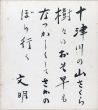 十津川の山さくら
樹々のおそ早も
なつかしくしてされの
ほり行く
文明